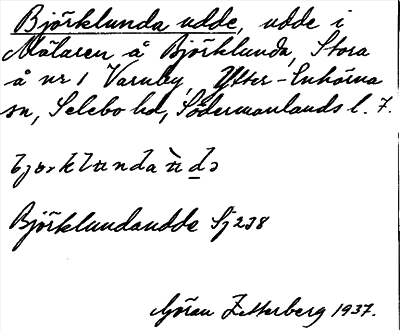 Björklunda udde, udde i
Mälaren å Björklunda, Stora
å nr 1 Varuby, Ytter-Enhörna
sn, Selebo hd, Södermanlands l. 7.
Björklundaudde Sj 238
Göran Zetterberg 1937.